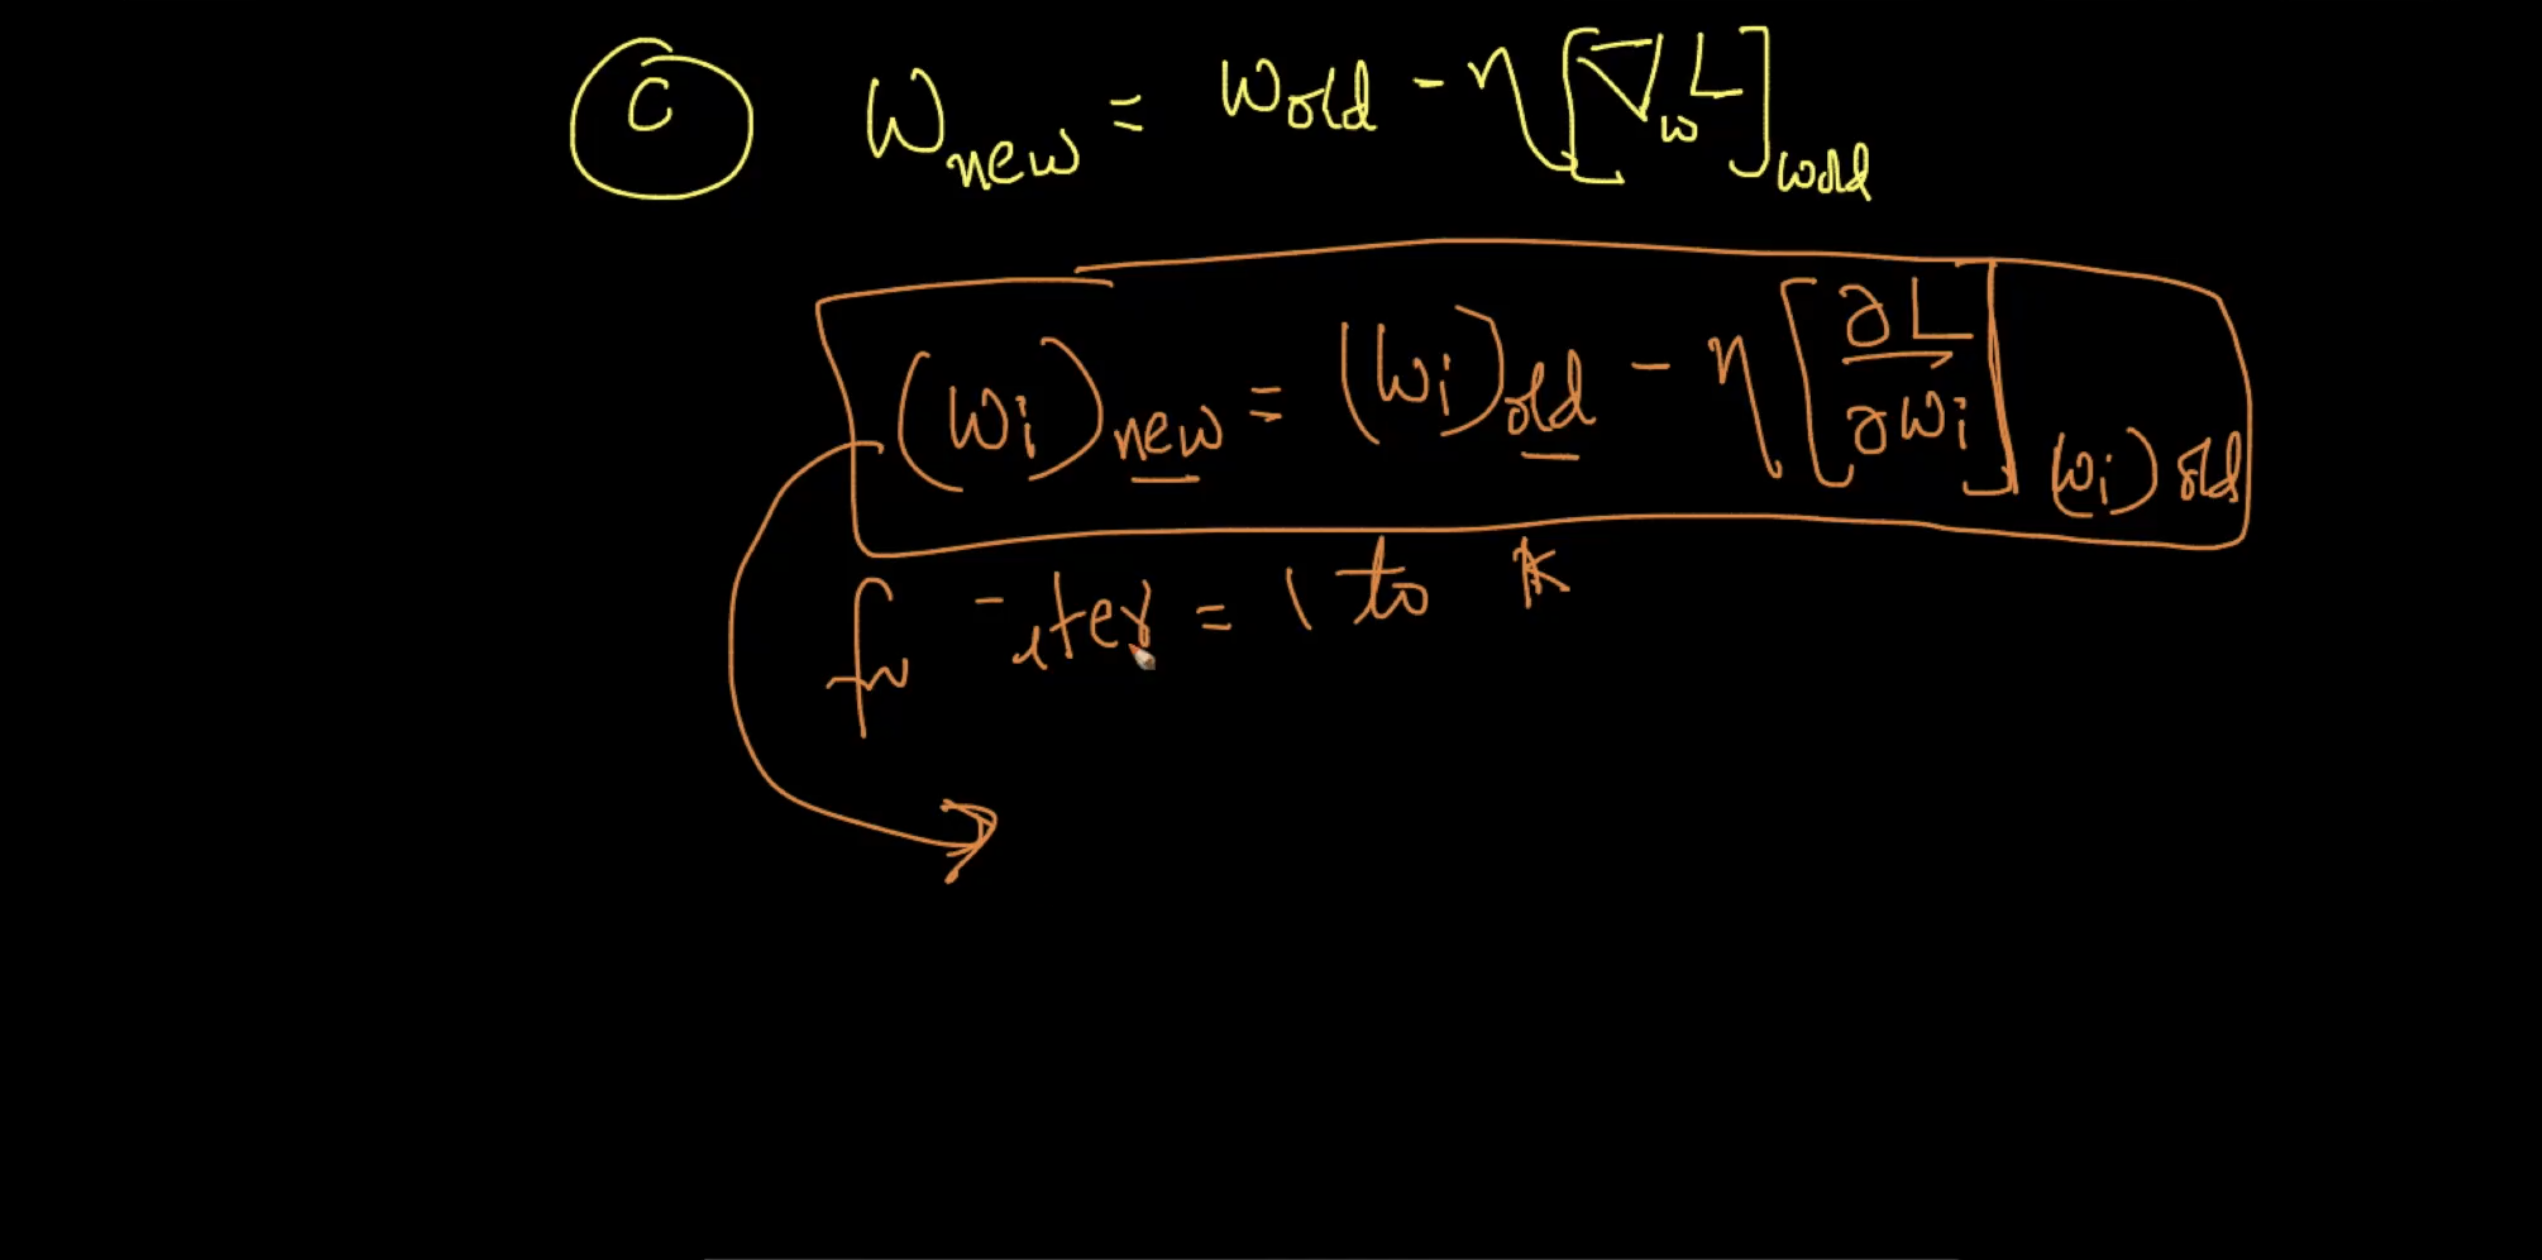 C W_new = W_old - η[∇_w L]_w_old
(W_i)_new = (W_i)_old - η[∂L/∂W_i]_(W_i)_old
for iter = 1 to K